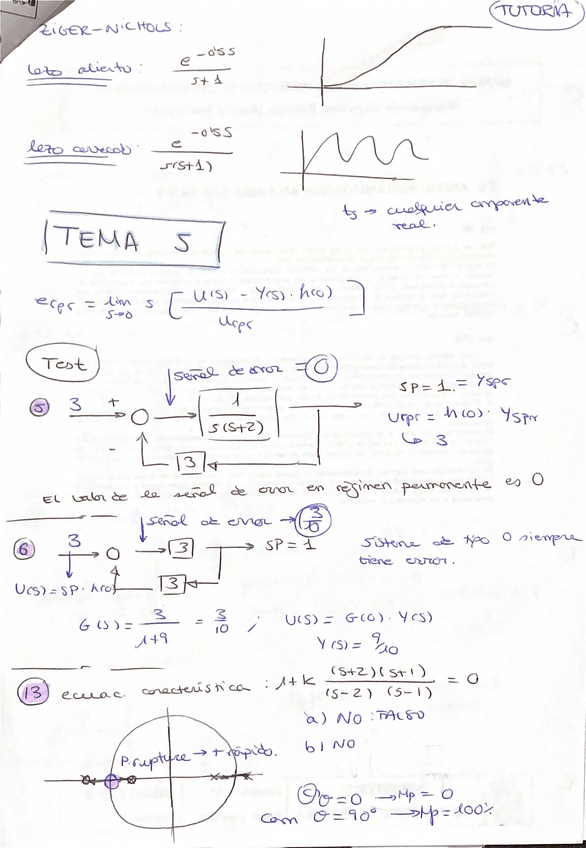 TUTORIA
ZIGER-NICHOLS:
lazo abierto: e^-0'5S / S+1
lazo cerrado: e^-0'5S / S(S+1)
ts → cualquier componente
real.
TEMA 5
e_rpr = lim S→0 S [ U(S) - Y(S)·h(0) / U_rpr ]
Test
señal de error = 0
5 3 + - 1 / S(S+2) 3
SP = 1 = Yspr
Urpr = h(0)· Yspr
↳ 3
El valor de la señal de error en régimen permanente es 0
señal de error → 3/0
6 3 3 → SP = 1 3
Sistema de tipo 0 siempre
tiene error.
U(S) = SP · h(0)
G(S) = 3 / 1+9 = 3/10 ; U(S) = G(0)·Y(S)
Y(S) = 9/10
13 ecuac. característica : 1+K (S+2)(S+1) / (S-2)(S-1) = 0
a) NO : FALSO
b) NO
P.ruptura → + rápido.
θ = 0 → Mp = 0
com θ = 90° → Mp = 100%